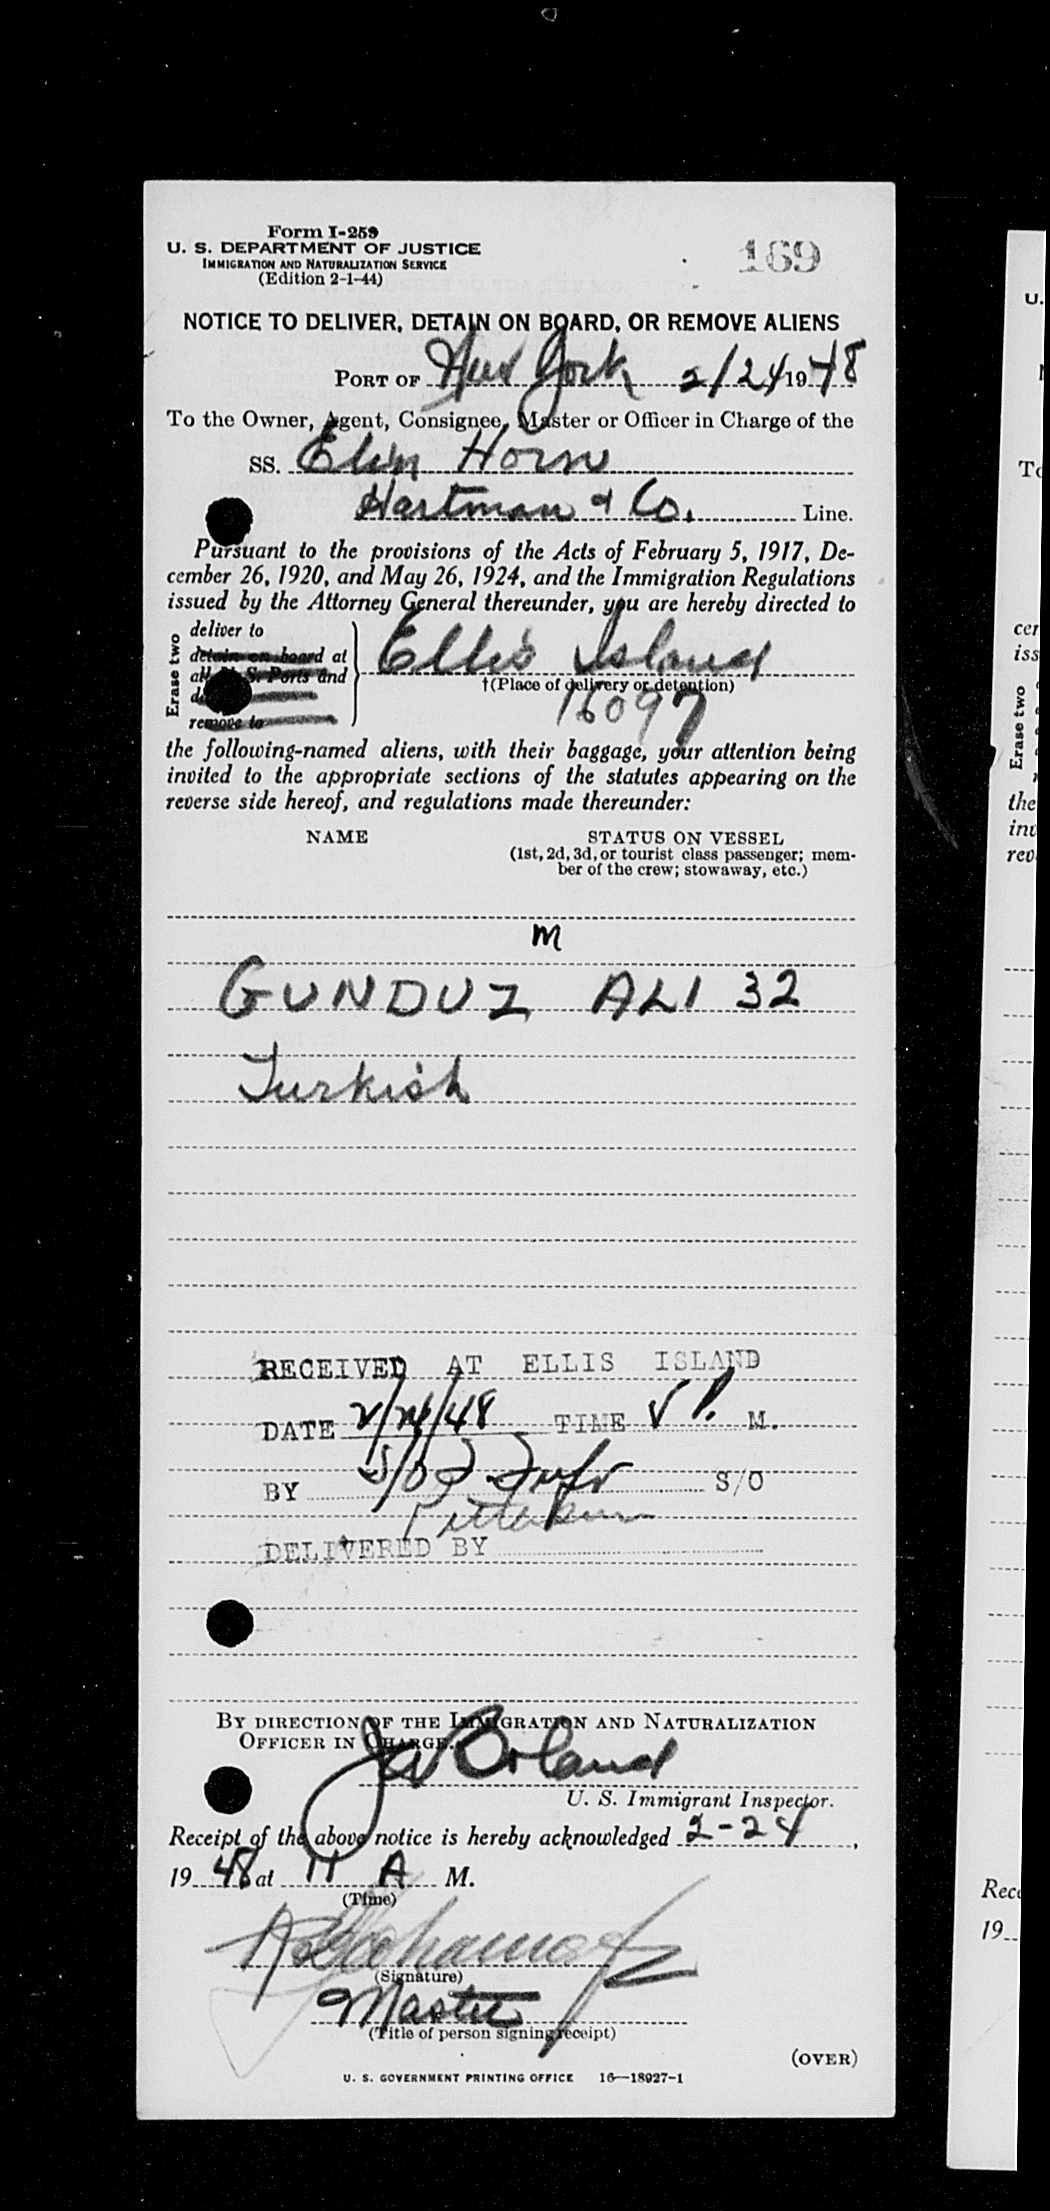 Form I-259
U. S. DEPARTMENT OF JUSTICE
IMMIGRATION AND NATURALIZATION SERVICE
(Edition 2-1-44)
169
NOTICE TO DELIVER, DETAIN ON BOARD, OR REMOVE ALIENS
PORT OF New York 2/24/1948
To the Owner, Agent, Consignee, Master or Officer in Charge of the
SS. Elin Horn
Hartman & Co. Line.
Pursuant to the provisions of the Acts of February 5, 1917, De-
cember 26, 1920, and May 26, 1924, and the Immigration Regulations
issued by the Attorney General thereunder, you are hereby directed to
Erase two
deliver to
detain on board at
all U. S. Ports and
remove to
Ellis Island
†(Place of delivery or detention)
16097
the following-named aliens, with their baggage, your attention being
invited to the appropriate sections of the statutes appearing on the
reverse side hereof, and regulations made thereunder:
NAME STATUS ON VESSEL
(1st, 2d, 3d, or tourist class passenger; mem-
ber of the crew; stowaway, etc.)
M
GUNDUZ ALI 32
Turkish
RECEIVED AT ELLIS ISLAND
DATE 2/24/48 TIME P. M.
BY S/O
DELIVERED BY
BY DIRECTION OF THE IMMIGRATION AND NATURALIZATION
OFFICER IN CHARGE.
Boland
U. S. Immigrant Inspector.
Receipt of the above notice is hereby acknowledged 2-24,
1948 at 11 A M.
(Time)
(Signature)
Master
(Title of person signing receipt)
(OVER)
U. S. GOVERNMENT PRINTING OFFICE 16—18927-1
U.
To
cer
iss
Erase two
the
inv
rev
Rece
19